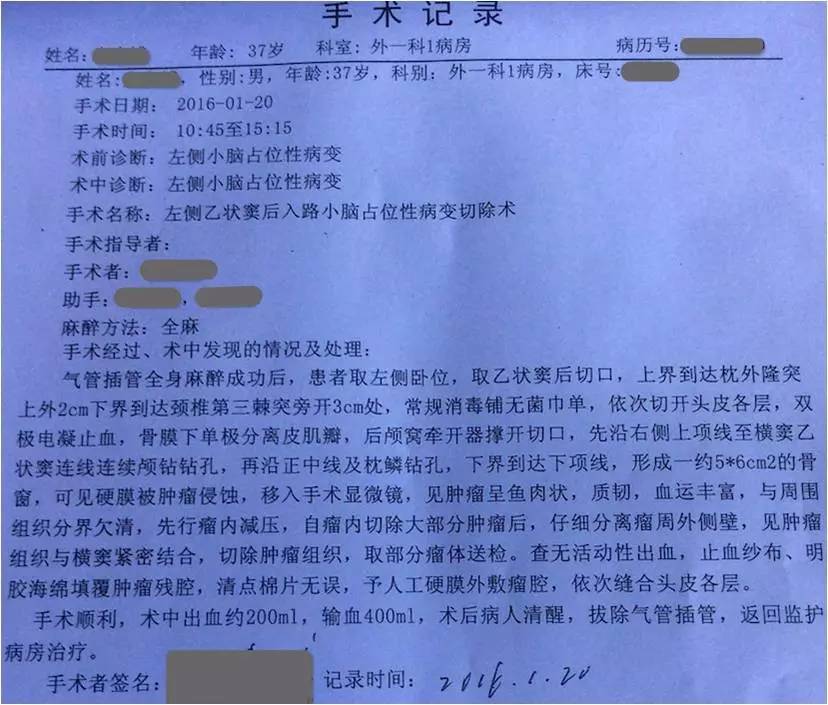 手术记录
姓名: 年龄: 37岁 科室: 外一科1病房 病历号:
姓名: , 性别:男, 年龄:37岁, 科别: 外一科1病房, 床号:
手术日期: 2016-01-20
手术时间: 10:45至15:15
术前诊断: 左侧小脑占位性病变
术中诊断: 左侧小脑占位性病变
手术名称: 左侧乙状窦后入路小脑占位性病变切除术
手术指导者:
手术者:
助手: ,
麻醉方法: 全麻
手术经过、术中发现的情况及处理:
气管插管全身麻醉成功后, 患者取左侧卧位, 取乙状窦后切口, 上界到达枕外隆突
上外2cm下界到达颈椎第三棘突旁开3cm处, 常规消毒铺无菌巾单, 依次切开头皮各层, 双
极电凝止血, 骨膜下单极分离皮肌瓣, 后颅窝牵开器撑开切口, 先沿右侧上项线至横窦乙
状窦连线连续颅钻钻孔, 再沿正中线及枕鳞钻孔, 下界到达下项线, 形成一约5*6cm2的骨
窗, 可见硬膜被肿瘤侵蚀, 移入手术显微镜, 见肿瘤呈鱼肉状, 质韧, 血运丰富, 与周围
组织分界欠清, 先行瘤内减压, 自瘤内切除大部分肿瘤后, 仔细分离瘤周外侧壁, 见肿瘤
组织与横窦紧密结合, 切除肿瘤组织, 取部分瘤体送检。查无活动性出血, 止血纱布、明
胶海绵填覆肿瘤残腔, 清点棉片无误, 予人工硬膜外敷瘤腔, 依次缝合头皮各层。
手术顺利, 术中出血约200ml, 输血400ml, 术后病人清醒, 拔除气管插管, 返回监护
病房治疗。
手术者签名: 记录时间: 2016.1.20